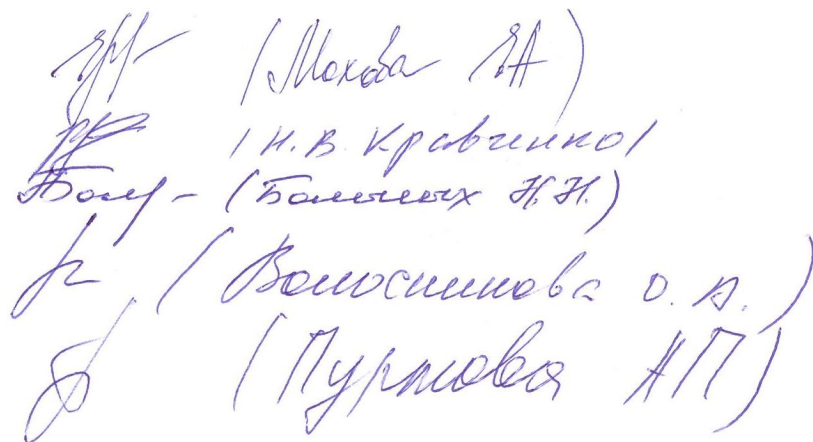 (Мохова ЕА)
/Н.В. Кравченко/
(Больных Н.Н.)
(Волосникова О.А.)
(Пуртова АП)